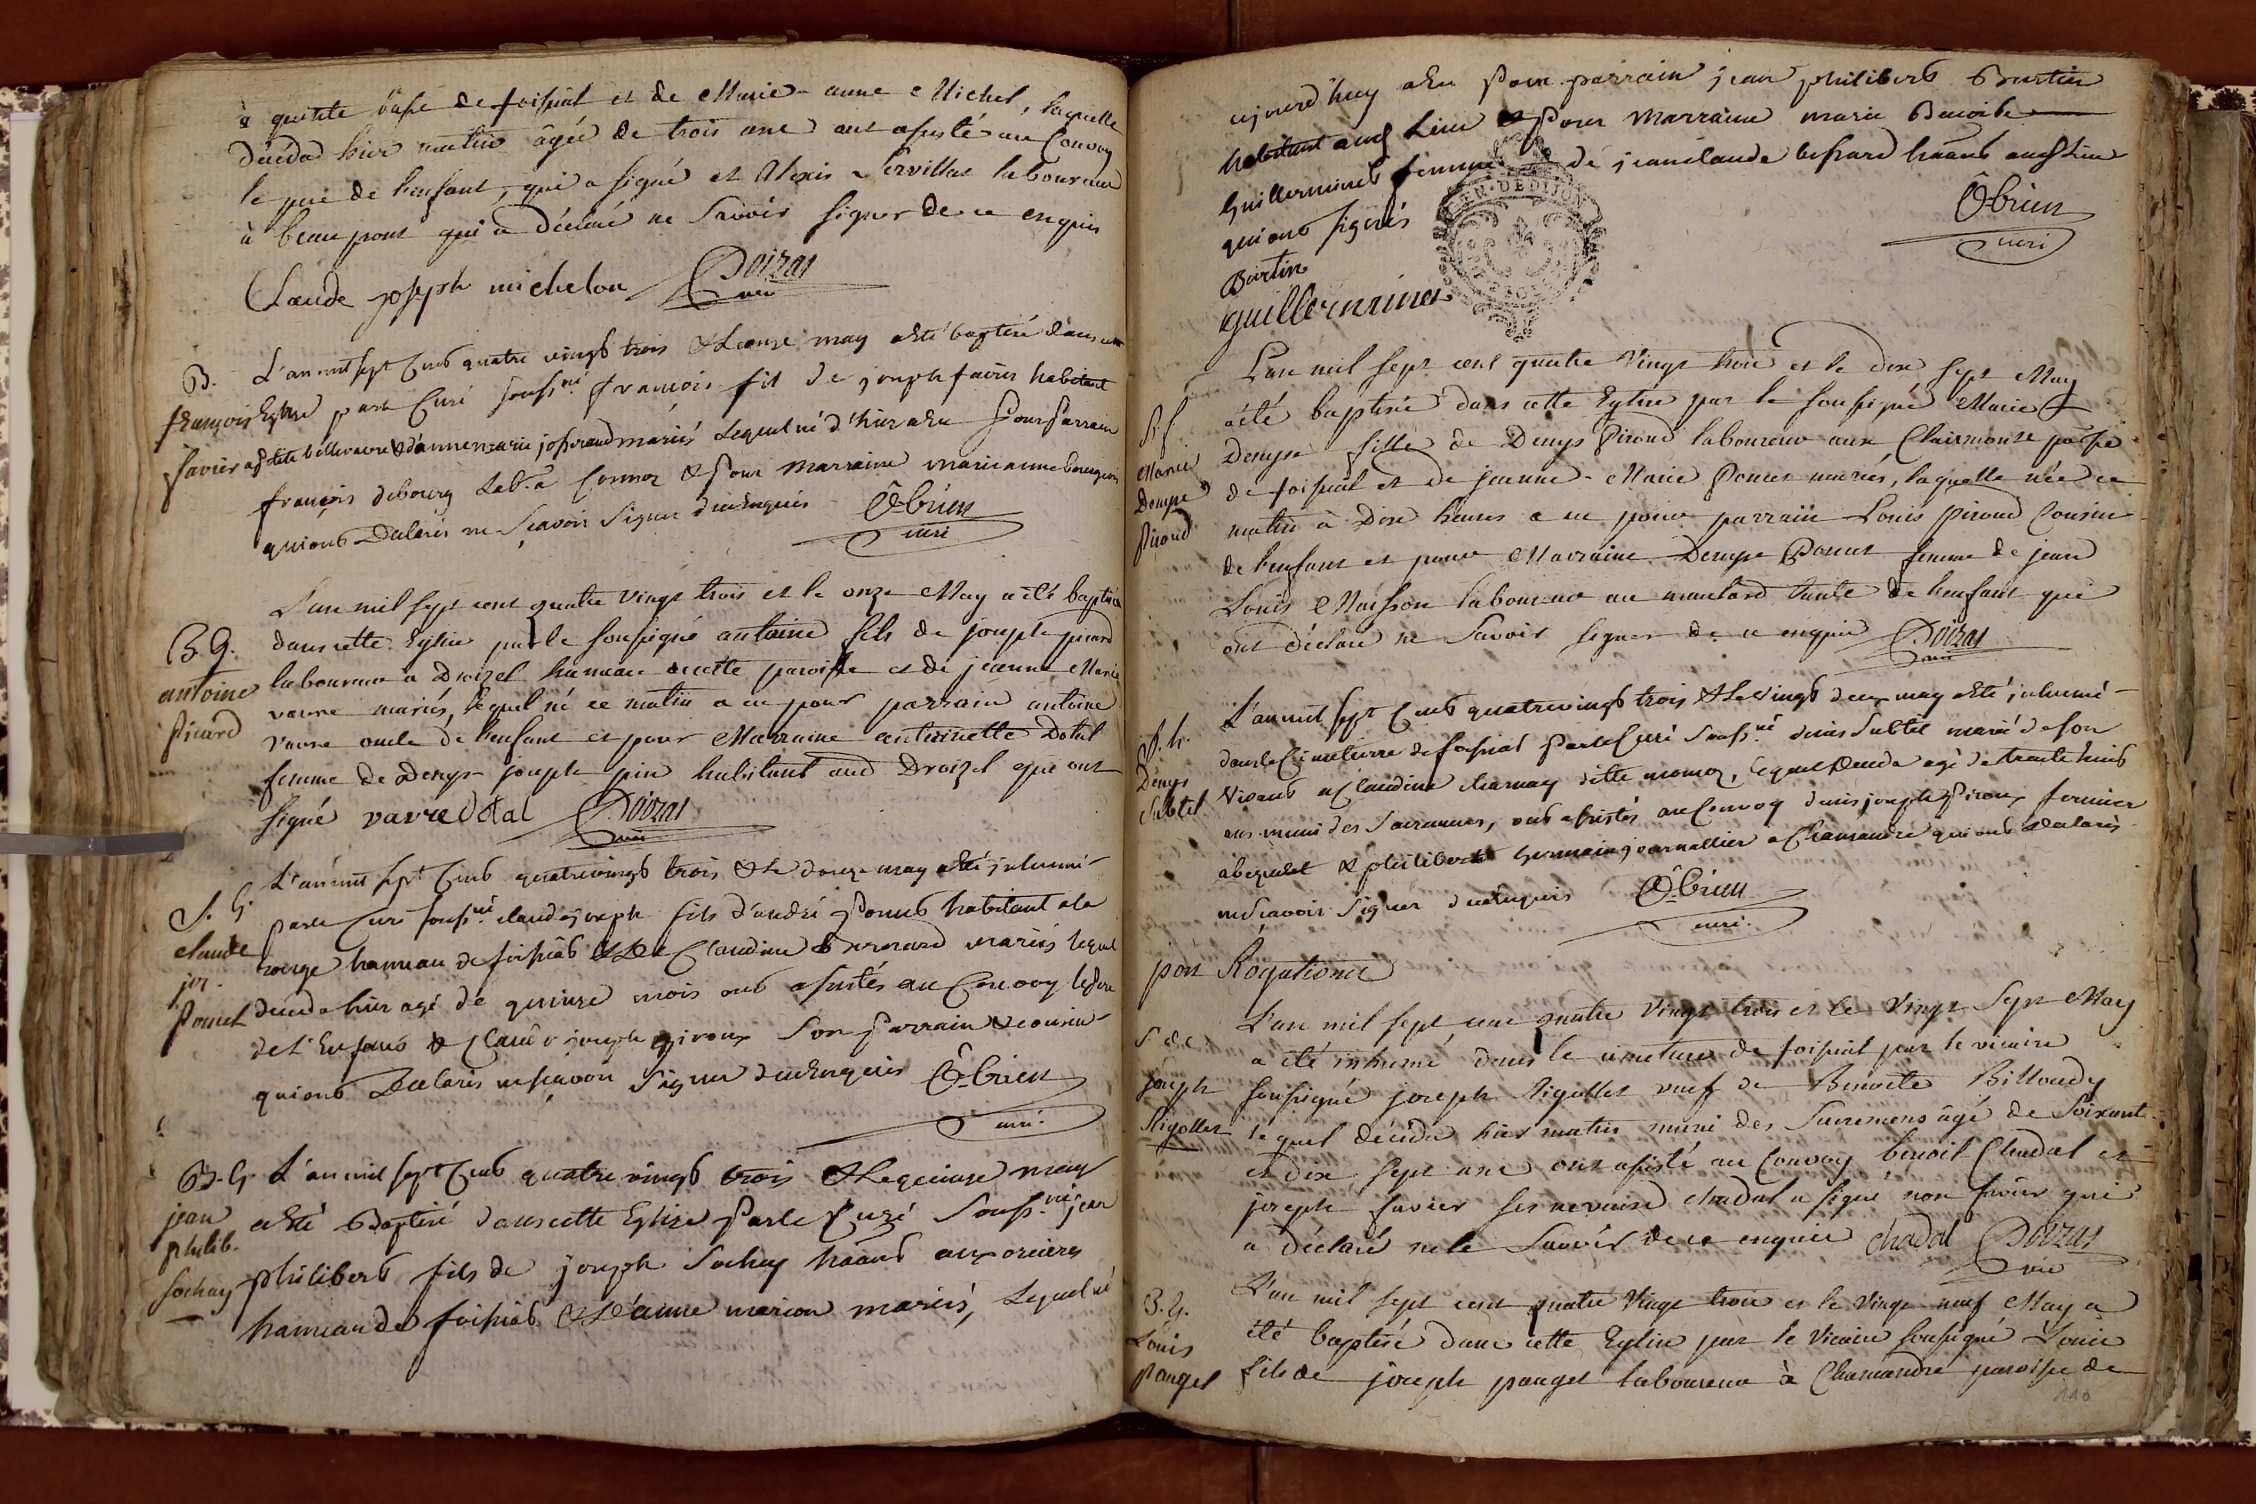 de foissiat et de Marie-anne Michel, laquelle
décéda hier matin âgée de trois ans ont assisté au Convoy
le père de l'enfant, qui a signé et Alexis laboureur
à beaupont qui a déclaré ne Savoir signer de ce enquis
Claude joseph michelon Poizat
B. L'an mil sept Cents quatre vingt trois & Le onze may a Eté baptisé dans cette
françois Eglise par le Curé souss.né françois fils de joseph favier habitant
favier & d'anne marie mariés Lequel né d'hier a Eu Pour Parrain
françois debourg Lab.r a Cormoz & Pour Marraine marie anne
qui ont Déclarés ne Sçavoir Signer d'ice Enquis O-brien
curé
L'an mil sept cent quatre vingt trois et le onze May a été baptisé
B. G. dans cette Eglise par le soussigné antoine fils de joseph picard
antoine laboureur a Droizel hameau de cette paroisse et de jeanne Marie
picard vavre mariés, lequel né ce matin a eu pour parrain antoine
vavre oncle de l'enfant et pour Marraine antoinette Dotal
femme de Denys joseph pin habitant aud Droizel qui ont
signé vavre dotal Poizat
L'an mil sept Cents quatre vingt trois & Le douze may a Eté inhumé
S. G. par le Curé souss.né claude joseph fils d'andré Ponet habitant a la
claude
jos. hameau de foissiat & De Claudine mariés lequel
Ponet deceda hier agé de quinze mois ont assistés au Convoy le père
de L'Enfant & Claude joseph piroux Son Parrain & cousin
qui ont Déclarés ne sçavoir Signer d'ice Enquis O-brien
curé.
B. G. L'an mil sept Cents quatre vingt trois & Le quinze may
jean a Eté Baptisé dans cette Eglise Par le Curé Souss.né jean
philib. philibert fils de joseph Sochay aux orcieres
sochay hameau de foissiat & D'anne marion mariés, Lequel né
aujourd'huy a Eu Pour parrain jean philibert Burtin
habitant aud Lieu & Pour Marraine marie Benoite
Guillerminet femme de jeanclaude aud Lieu
qui ont signés O-brien
curé
Burtin
guillerminet
GEN. DE DIJON
L'an mil sept cent quatre Vingt trois et le dix sept May
B. f. a été baptisée dans cette Eglise par le soussigné Marie
Marie Denyse fille de Denys Piroud laboureur aux Clairmonts
Denyse de foissiat et de jeanne-Marie Ponet mariés, laquelle née ce
Piroud matin à Dix heures a eu pour parrain Louis Piroud Cousin
de l'enfant et pour Marraine Denyse Ponet femme de jean
Louis Moisson laboureur au tante de l'enfant qui
ont déclaré ne Savoir signer de ce enquis Poizat
L'an mil sept Cents quatre vingt trois & Le vingt deux may a Eté inhumé
S. h. dans le Cimetierre de foissiat Par le Curé Souss.né denis Subtil marié de son
Denys Vivant a Claudine charnay, lequel deceda agé de trente huit
Subtil ans muni des Sacremens, ont assistés au Convoy denis joseph Piroux fermier
& philibert Germain journallier a Chamandre qui ont Déclarés
ne Sçavoir Signer d'ice Enquis O-brien
curé.
post Rogationes
L'an mil sept cent quatre Vingt trois et le Vingt Sept May
a été inhumé dans le cimetiere de foissiat par le vicaire
joseph soussigné joseph Rigollet veuf de Benoite Billoudy
Rigollet lequel décéda hier matin muni des Sacremens âgé de soixante
et dix sept ans ont assisté au Convoy benoit Chadal et
joseph favier ses neveux chadal a signé non favier qui
a déclaré ne le Savoir de ce enquis chadal Poizat
vic
B. g. L'an mil sept cent quatre Vingt trois et le Vingt neuf May a
été baptisé dans cette Eglise par le Vicaire soussigné Louis
Louis
Pauget fils de joseph pauget laboureur à Chamandre paroisse de
110